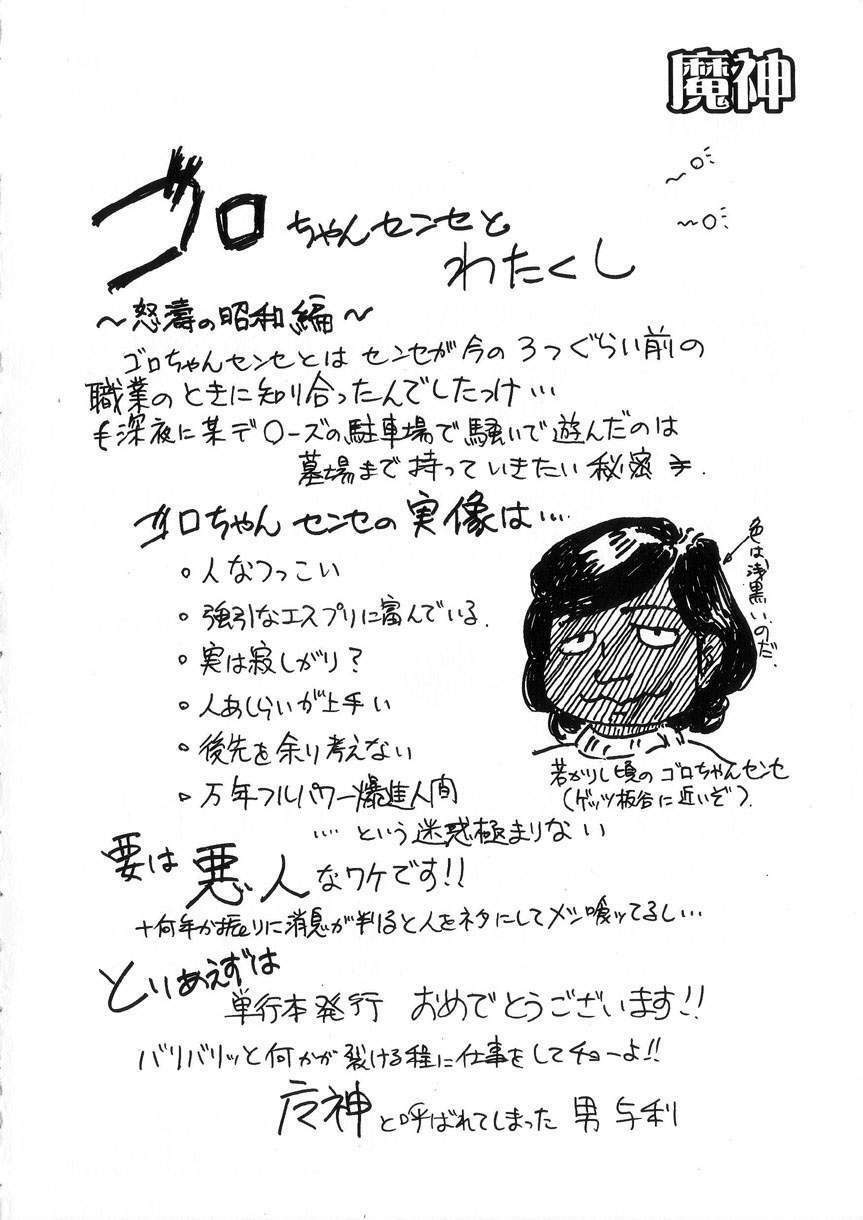 魔神
ゴロちゃんセンセと
わたくし
~怒濤の昭和編~
ゴロちゃんセンセとは センセが今の3つぐらい前の
職業のときに知り合ったんでしたっけ…
深夜に某デ○ーズの駐車場で騒いで遊んだのは
墓場まで持っていきたい秘密
ゴロちゃんセンセの実像は…
。人なつっこい
。強引なエスプリに富んでいる.
。実は寂しがり?
。人あしらいが上手い
。後先を余り考えない
。万年フルパワー爆進人間
…という迷惑極まりない
色は浅黒いのだ.
若かりし頃のゴロちゃんセンセ
(ゲッツ板谷に近いぞ).
要は悪人なワケです!!
十何年か振りに消息が判ると人をネタにしてメシ喰ってるし…
とりあえずは
単行本発行 おめでとうございます!!
バリバリッと何かが裂ける程に仕事をしてチョーよ!!
神と呼ばれてしまった男 与利